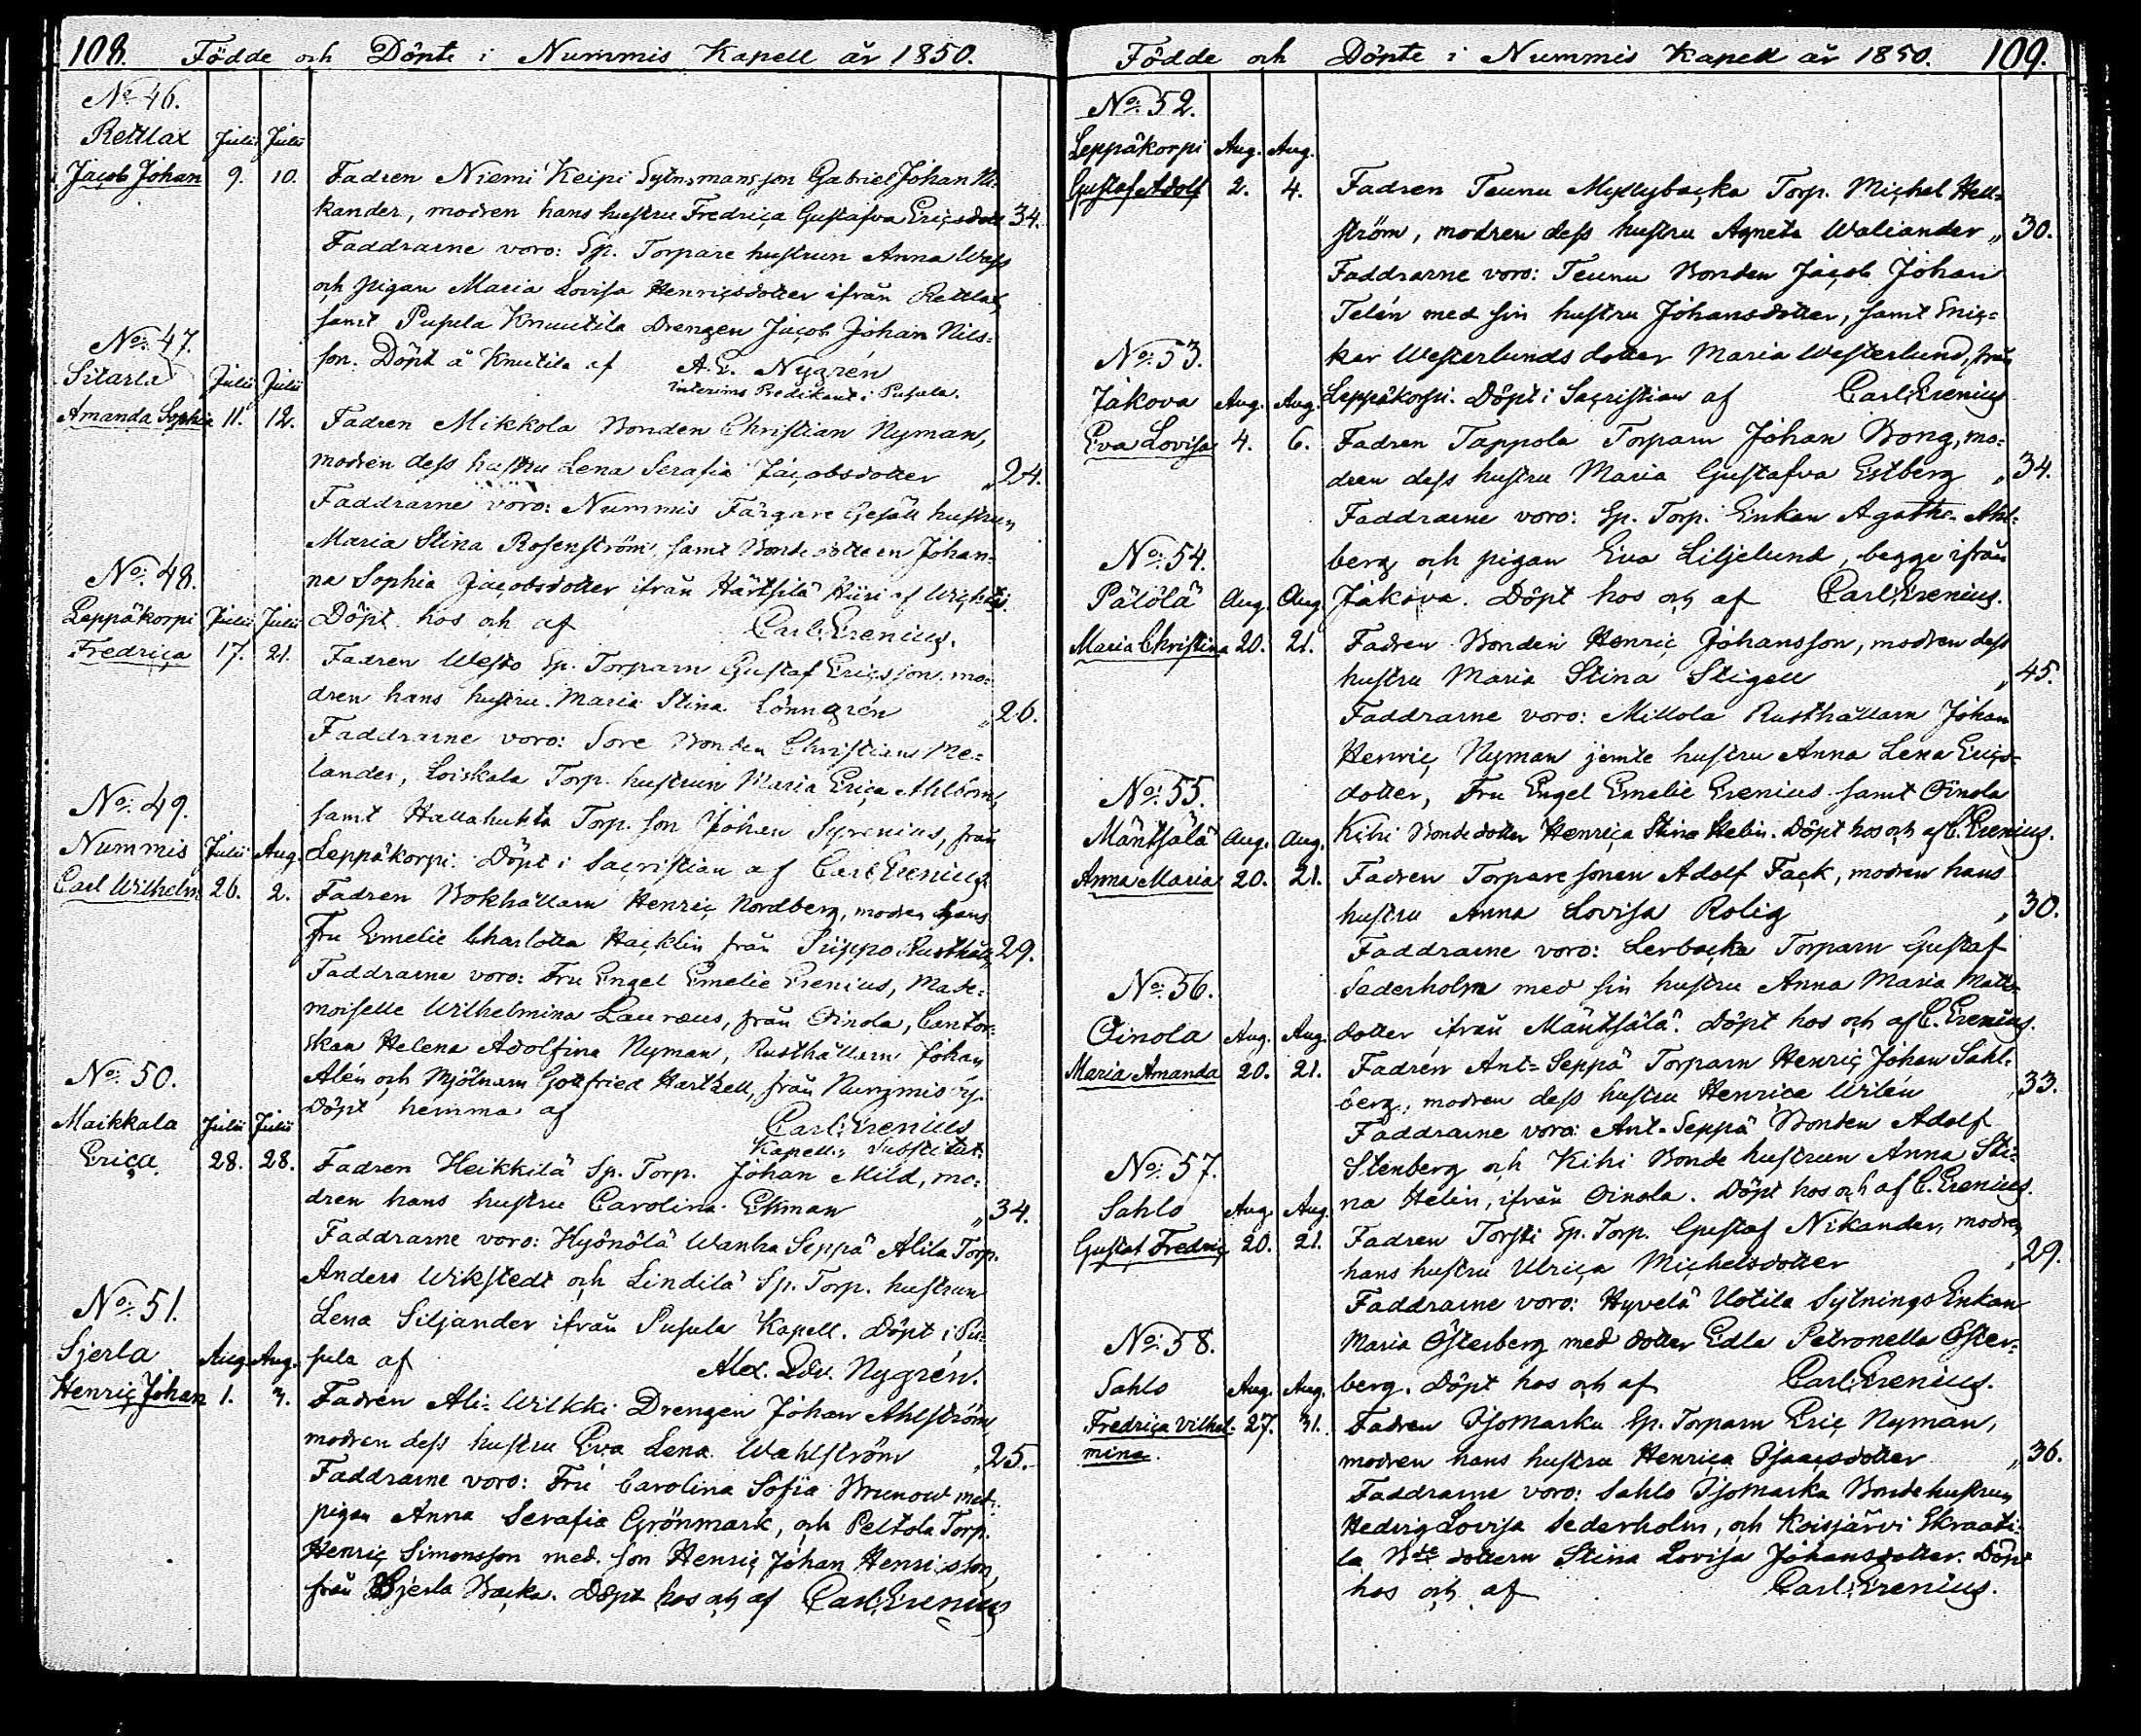 108. Födde och Döpte i Nummis Kapell år 1850.
No 46.
Rettlax Julii Julii
Jacob Johan 9. 10. Fadren Niemi Keipi Sytnsmansson Gabriel Johan Ni=
kander, modren hans hustru Fredrica Gustafva Ericsdott. 34.
Faddrarne voro: Sp. Torpare hustrun Anna Wass
och pigan Maria Lovisa Henricsdotter ifrån Rettlax,
samt Pusula Knuutila Drengen Jacob Johan Nils=
son. Döpt å Knutila af A. E. Nygrén
interims Predikant i Pusula.
No: 47.
Sitarla Julii Julii
Amanda Sophia 11. 12. Fadren Mikkola Bonden Christian Nyman,
modren dess hustru Lena Serafia Jacobsdotter " 24.
Faddrarne voro: Nummis Färgare Gesäll hustrun
Maria Stina Rosenström, samt Bondedotteren Johan=
na Sophia Jacobsdotter ifrån Härtsilä Hiiri af Wichtis.
Döpt hos och af Carl Erenius.
No: 48.
Leppäkorpi Julii Julii
Fredrica 17. 21. Fadren Westo Sp. Torparn Gustaf Ericsson, mo=
dren hans hustru Maria Stina Lönngrén " 26.
Faddrarne voro: Sore Bonden Christian Me=
lander, Loiskala Torp. hustrun Maria Erica Ahlbom,
samt Hallahuhta Torp. son Johan Syrenius, från
Leppäkorpi. Döpt i Sacristian af Carl Erenius
No: 49.
Nummis Julii Aug.
Carl Wilhelm 26. 2. Fadren Bokhållarn Henric Nordberg, modren hans
Fru Emelie Charlotta Hacklin från Siippo Rusthåll, 29.
Faddrarne voro: Fru Engel Emelie Erenius, Made=
moiselle Wilhelmina Lauræus, från Oinola, Cantor=
skan Helena Adolfina Nyman, Rusthållarn Johan
Alén och Mjölnarn Gottfried Hartzell, från Nummis by.
Döpt hemma af Carl Erenius
Kapell: Substitut.
No: 50.
Maikkala Julii Julii
Erica 28. 28. Fadren Heikkilä Sp. Torp. Johan Mild, mo=
dren hans hustru Carolina Ekman " 34.
Faddrarne voro: Hyönölä Wanha Seppä Alila Torp.
Anders Wikstedt och Lindilä Sp. Torp. hustrun
Lena Siljander ifrån Pusula Kapell. Döpt i Pu=
sula af Alex. Edv. Nygrén.
No: 51.
Sjerla Aug. Aug.
Henric Johan 1. 3. Fadren Ali=Wilkki Drengen Johan Ahlström,
modren dess hustru Eva Lena Wahlström " 25.
Faddrarne voro: Fru Carolina Sofia Brunow med
pigan Anna Serafia Grönmark, och Peltola Torp.
Henric Simonsson med son Henric Johan Henricsson,
från Sjerla Backa. Döpt hos och af Carl Erenius
Födde och Döpte i Nummis Kapell år 1850. 109.
No: 52.
Leppäkorpi Aug. Aug.
Gustaf Adolf 2. 4. Fadren Teunu Myllybacka Torp. Michel Hell=
ström, modren dess hustru Agneta Waliander " 30.
Faddrarne voro: Teunu Bonden Jacob Johan
Telén med sin hustru Johansdotter, samt Snic=
kar Westerlunds dotter Maria Westerlund, från
Leppäkorpi. Döpt i Sacristian af Carl Erenius
No: 53.
Jakova Aug. Aug.
Eva Lovisa 4. 6. Fadren Tappola Torparn Johan Bong, mo=
dren dess hustru Maria Gustafva Estberg " 34.
Faddrarne voro: Sp. Torp. Enkan Agatha Ahl=
berg och pigan Eva Liljelund, begge ifrån
Jakova. Döpt hos och af Carl Erenius.
No: 54.
Pälölä Aug. Aug.
Maria Christina 20. 21. Fadren Bonden Henric Johansson, modren dess
hustru Maria Stina Stigell " 45.
Faddrarne voro: Millola Rusthållarn Johan
Henric Nyman jemte hustru Anna Lena Erics=
dotter, Fru Engel Emelie Erenius samt Oinola
Kihi Bondedotter Henrica Stina Helin. Döpt hos och af C. Erenius.
No: 55.
Mäntsälä Aug. Aug.
Anna Maria 20. 21. Fadren Torparesonen Adolf Fack, modren hans
hustru Anna Lovisa Rolig " 30.
Faddrarne voro: Lerbacka Torparn Gustaf
Sederholm med sin hustru Anna Maria Matts=
dotter ifrån Mäntsälä. Döpt hos och af C. Erenius.
No: 56.
Oinola Aug. Aug.
Maria Amanda 20. 21. Fadren Ant=Seppä Torparn Henric Johan Sahl=
berg, modren dess hustru Henrica Wilén " 33.
Faddrarne voro: Ant=Seppä Bonden Adolf
Stenberg och Kihi Bonde hustrun Anna Sti=
na Helin, ifrån Oinola. Döpt hos och af C. Erenius.
No: 57.
Sahlo Aug. Aug.
Gustaf Fredric 20. 21. Fadren Torsti Sp. Torp. Gustaf Nikander, modren
hans hustru Ulrica Michelsdotter " 29.
Faddrarne voro: Hyvelä Uotila Sytnings Enkan
Maria Österberg med dotter Edla Petronella Öster=
berg. Döpt hos och af Carl Erenius.
No: 58.
Sahlo Aug. Aug.
Fredrica Vilhel= 27. 31. Fadren Isomarku Sp. Torparn Eric Nyman,
mina. modren hans hustru Henrica Isaacsdotter " 36.
Faddrarne voro: Sahlo Isomarku Bondehustrun
Hedvig Lovisa Sederholm, och Koisjärvi Skraati=
la Bde dottern Stina Lovisa Johansdotter. Döpt
hos och af Carl Erenius.